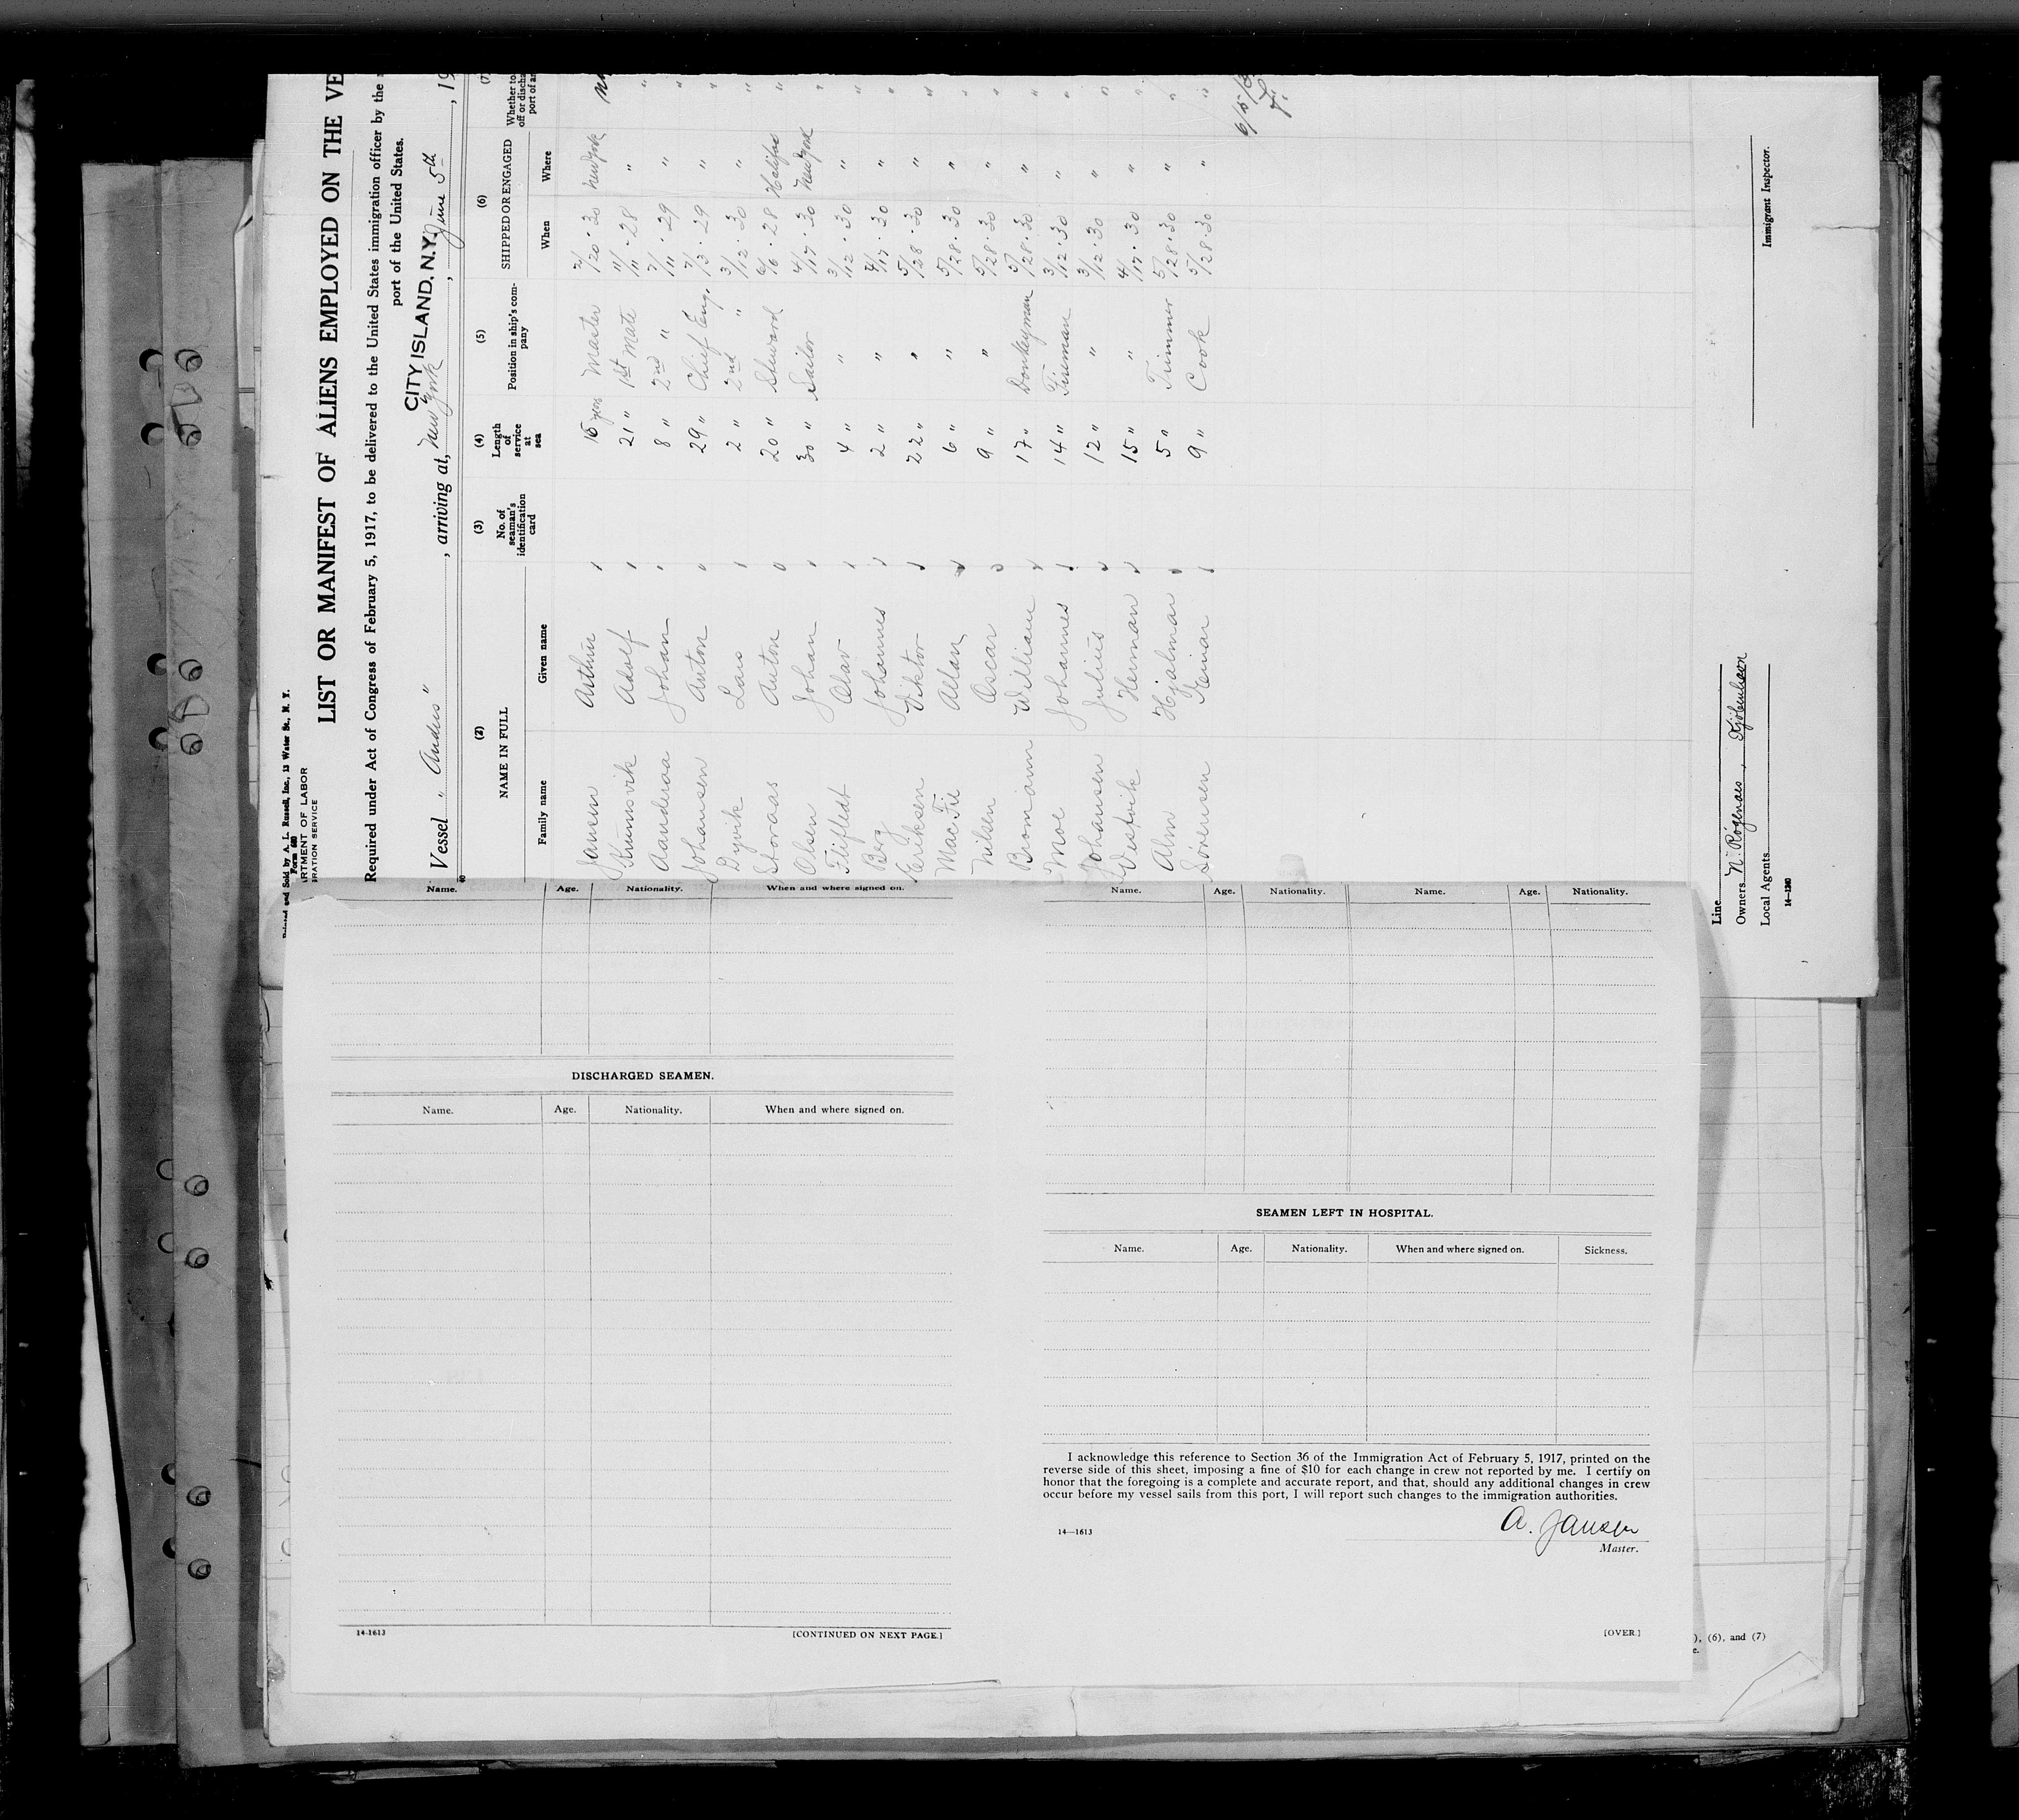 Printed and Sold by A. L. Russell, Inc., 13 Water St., N. Y.
Form 680
ARTMENT OF LABOR
IRATION SERVICE
LIST OR MANIFEST OF ALIENS EMPLOYED ON THE VE
Required under Act of Congress of February 5, 1917, to be delivered to the United States immigration officer by the
port of the United States.
CITY ISLAND, N.Y.
Vessel " ", arriving at, New York, June 5th, 19
(2) (3) (4) (5) (6) (7)
NAME IN FULL No. of seaman's identification card Length of service at sea Position in ship's company SHIPPED OR ENGAGED Whether to
off or discha
port of ar
Family name Given name When Where
Jansen Arthur 16 years Master 2/20 · 30 New York
Kumsvik Adolf 21 " 1st Mate 11/11 · 28 " "
Aanderaa Johan 8 " 2nd " 2/11 · 29 " "
Johansen Anton 29 " Chief Eng. 7/3 · 29 " "
Dyvik Lars 2 " 2nd " 3/12 · 30 " "
Storaas Anton 20 " Steward 6/6 · 28 Halifax "
Olsen Johan 30 " Sailor 4/17 · 30 New York "
Flifledt Olav 4 " " 3/12 · 30 " "
Berg Johannes 2 " " 4/17 · 30 " "
Eriksen Viktor 22 " " 5/28 · 30 " "
Mac Fie Allan 6 " " 5/28 · 30 " "
Nilsen Oscar 9 " " 5/28 · 30 " "
Bromann William 17 " Donkeyman 5/28 · 30 " "
Moe Johannes 14 " Fireman 3/12 · 30 " "
Johansen Julius 12 " " 3/12 · 30 " "
Vestvik Herman 15 " " 4/17 · 30 " "
Alm Hjalmar 5 " Trimmer 5/28 · 30 " "
Sörensen Einar 9 " Cook 5/28 · 30 " "
Line
Owners N. Rogenaes,
Local Agents
14—1240
Immigrant Inspector.
Name. Age. Nationality. When and where signed on.
DISCHARGED SEAMEN.
Name. Age. Nationality. When and where signed on.
14-1613 [CONTINUED ON NEXT PAGE.]
Name. Age. Nationality. Name. Age. Nationality.
SEAMEN LEFT IN HOSPITAL.
Name. Age. Nationality. When and where signed on. Sickness.
I acknowledge this reference to Section 36 of the Immigration Act of February 5, 1917, printed on the
reverse side of this sheet, imposing a fine of $10 for each change in crew not reported by me. I certify on
honor that the foregoing is a complete and accurate report, and that, should any additional changes in crew
occur before my vessel sails from this port, I will report such changes to the immigration authorities.
A. Jansen
14—1613
Master.
[OVER.]
), (6), and (7)
e.